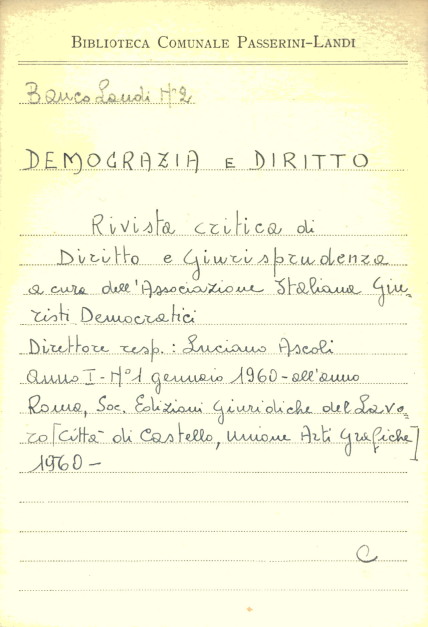 BIBLIOTECA COMUNALE PASSERINI-LANDI
Banco Landi N° 2
DEMOCRAZIA E DIRITTO
Rivista critica di
Diritto e Giurisprudenza
a cura dell'Associazione Italiana Giu-
risti Democratici
Direttore resp.: Luciano Ascoli
anno I - N° 1 gennaio 1960 - all'anno
Roma, Soc. Edizioni Giuridiche del Lavo-
ro [Città di Castello, Unione Arti Grafiche]
1960 -
C